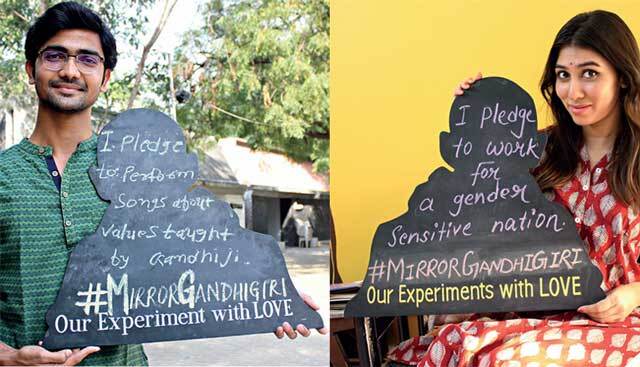 I Pledge
to Perform
Songs about
values taught
by Gandhiji.
#MIRRORGANDHIGIRI
Our Experiment with LOVE
I pledge
to work
for
a gender
Sensitive nation.
#MIRRORGANDHIGIRI
Our Experiments with LOVE